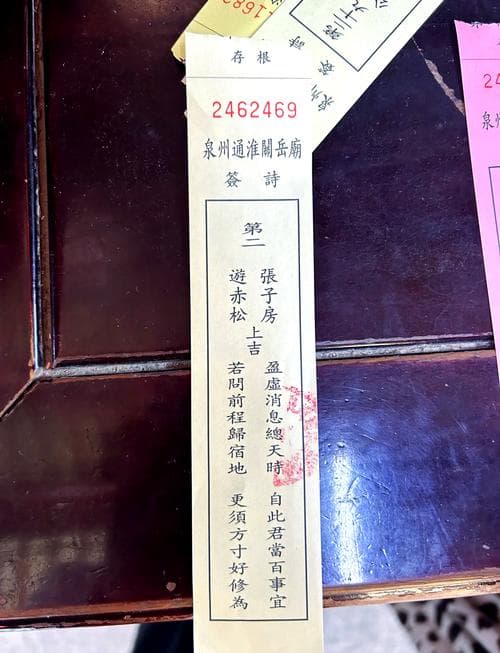 存根
2462469
泉州通淮關岳廟
簽詩
第二
張子房
遊赤松
上吉
盈虛消息總天時 自此君當百事宜
若問前程歸宿地 更須方寸好修為
第二九
簽詩
24
泉州